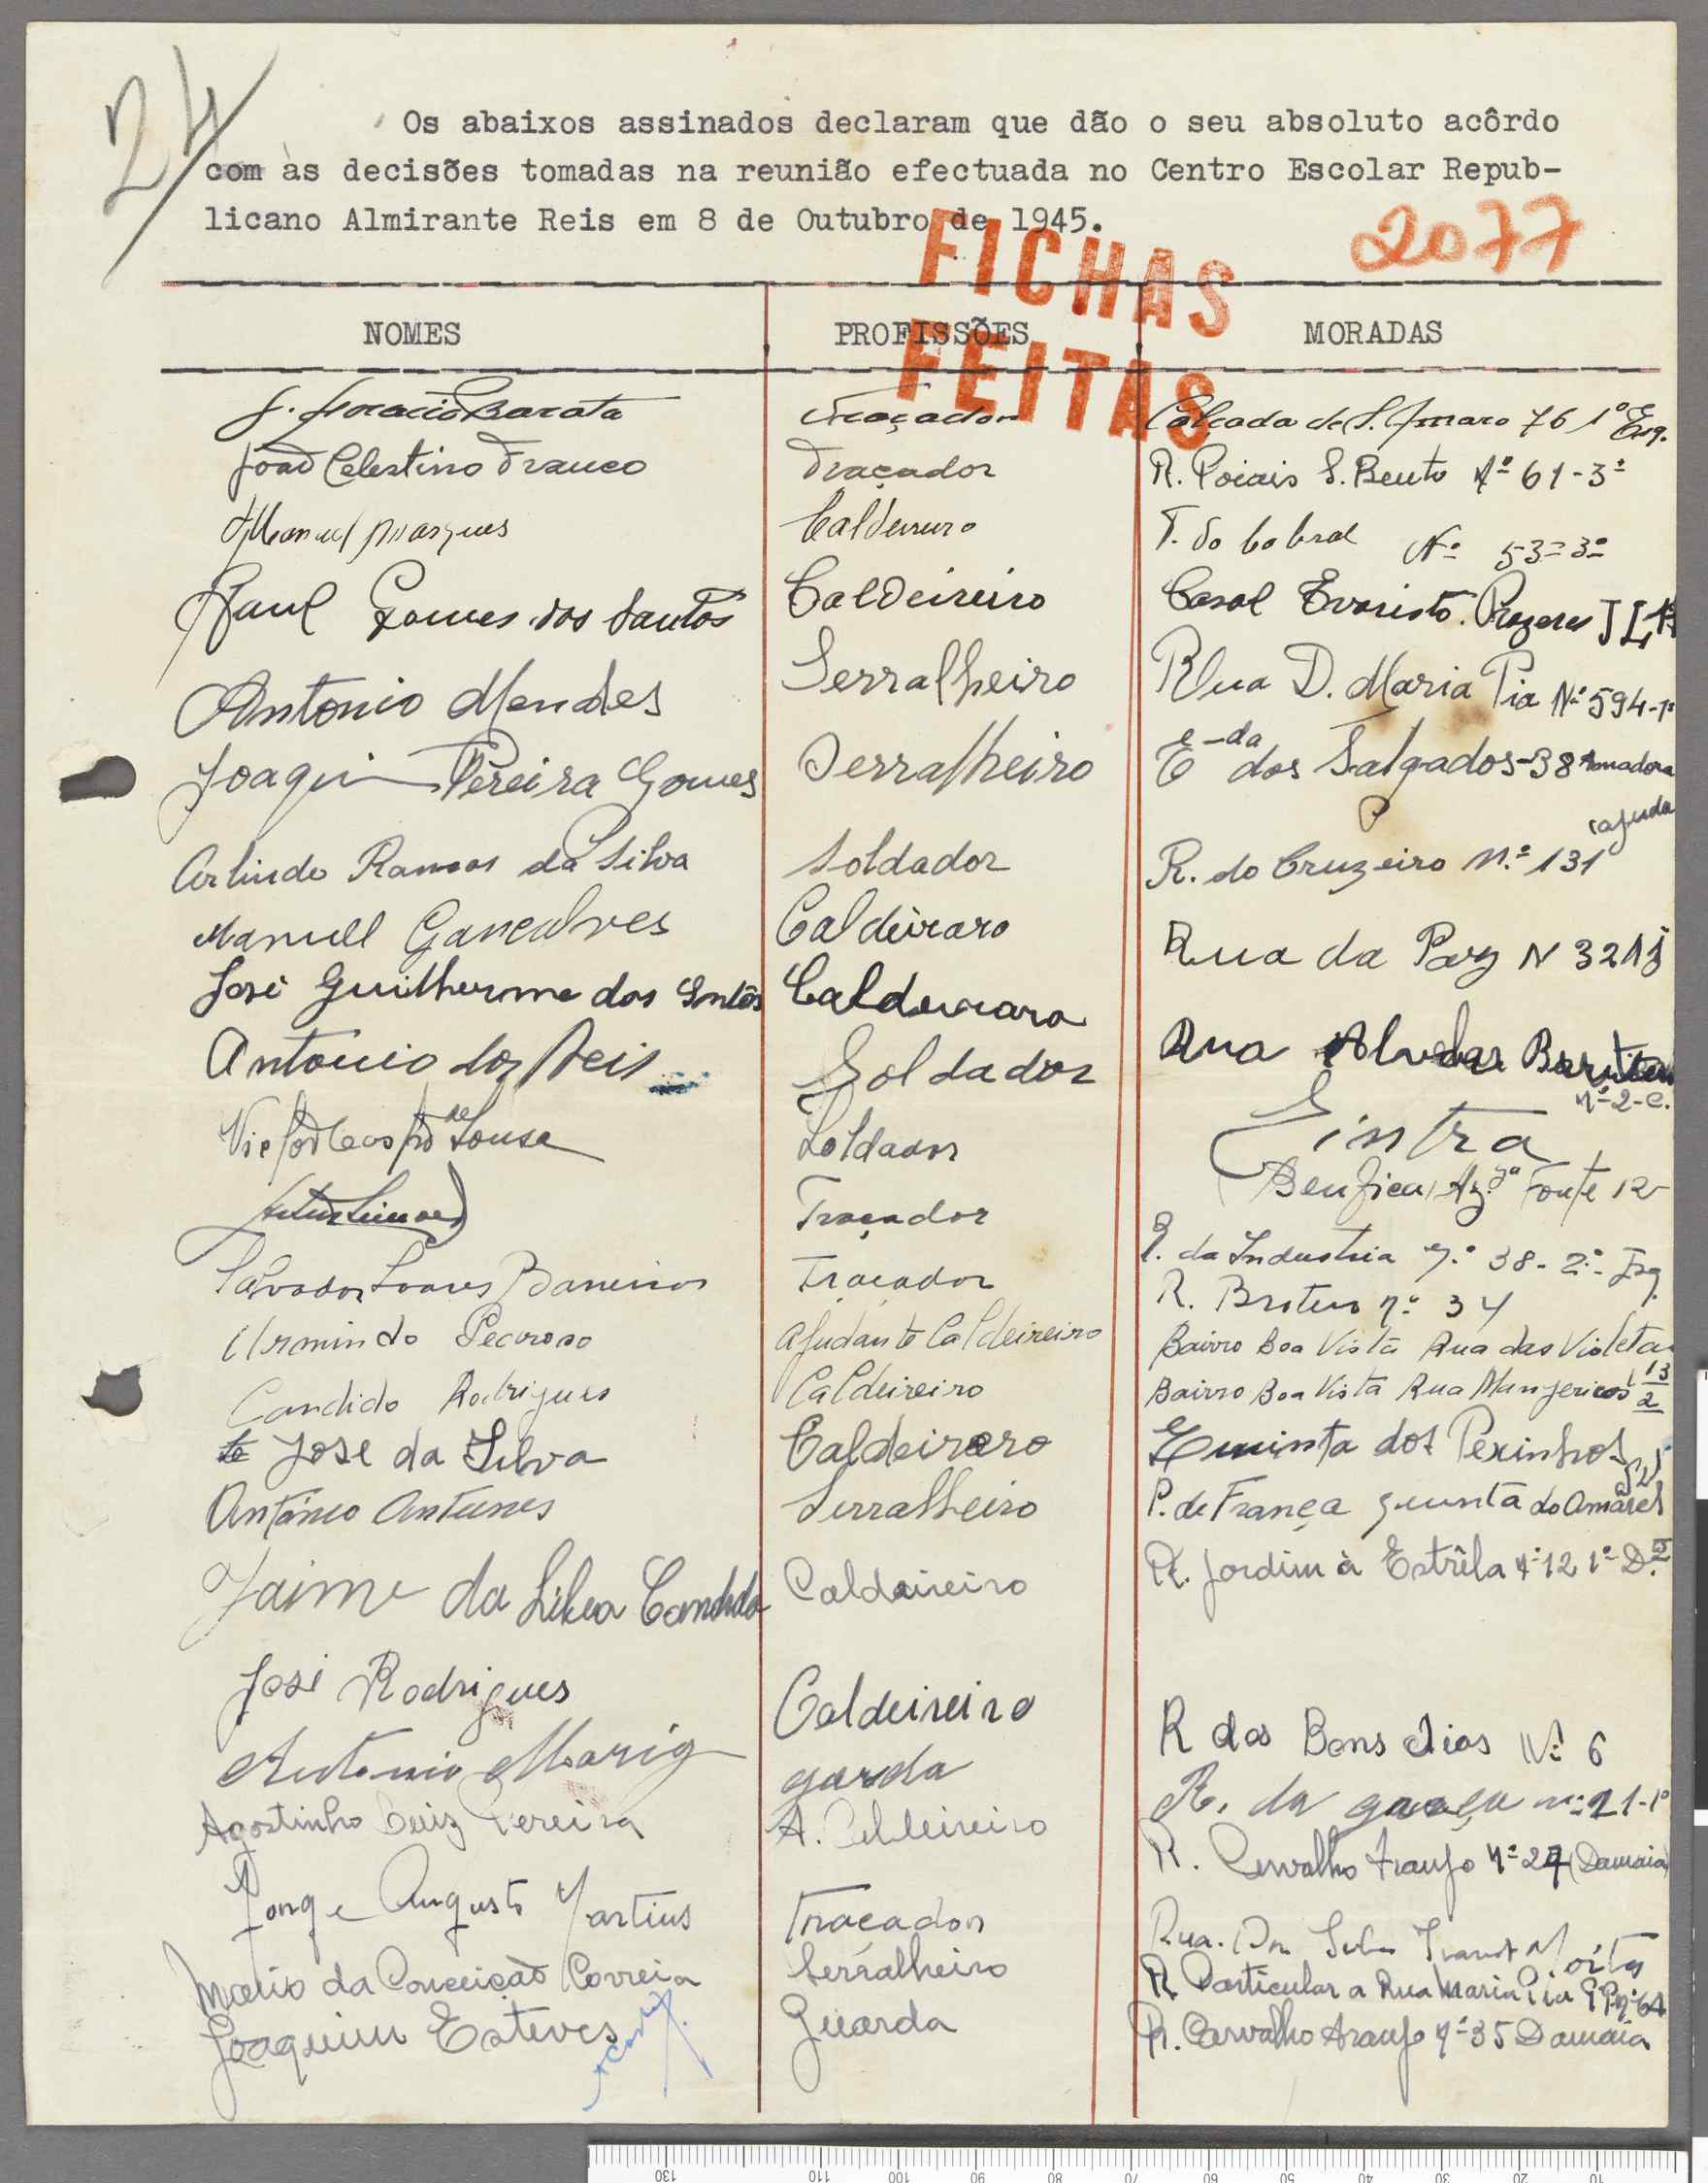 24
Os abaixos assinados declaram que dão o seu absoluto acôrdo
com às decisões tomadas na reunião efectuada no Centro Escolar Repub-
licano Almirante Reis em 8 de Outubro de 1945.
2077
FICHAS
FEITAS
NOMES PROFISSÕES MORADAS
J. Horacio Barata Traçador Calçada de S. Amaro 76 1º Esq.
João Celestino Franco Traçador R. Poiais S. Bento Nº 61-3º
Manuel Marques Caldeireiro T. do Cabral Nº 53-3º
Raul Gomes dos Santos Caldeireiro Casal Evaristo. Prazeres J L
Antonio Mendes Serralheiro Rua D. Maria Pia Nº 594-1º
Joaquim Pereira Gomes Serralheiro dos Salgados-38 Amadora
Arlindo Ramos da Silva Soldador R. do Cruzeiro N.º 131 (ajuda
Manuell Gancalves Caldeiraro Rua da Paz N
José Guilherme dos Caldeiraro Rua
Antonio dos Reis Soldador nº-2-C.
Sintra
de Sousa Soldador Benfica, Fonte 12
Traçador R. da Industria nº 38-2º-Esq.
Salvador Soares Traçador R. nº 34
Armindo Ajudante Caldeireiro Bairro Boa Vista Rua das Violetas
13
Candido Rodrigues Caldeireiro Bairro Boa Vista Rua Manjericos 2
José da Silva Caldeiraro dos
António Antunes Serralheiro P. de França quinta do
Jaime da Silva Candido Caldeireiro R. Jardim à Estrêla nº 12 1º D.to
José Rodrigues Caldeireiro R dos Bons dias Nº 6
Antonio Maria garda R. da nº 21-1º
Agostinho Luiz Pereira A. Caldeireiro R. Carvalho Araujo nº (Damaia)
Jorge Augusto Martins Traçador Rua. Dr.
Mario da Conceição Correia Serralheiro R Particular a Rua Maria Pia
Joaquim Esteves Guarda R. Carvalho Araujo nº 35 Damaia